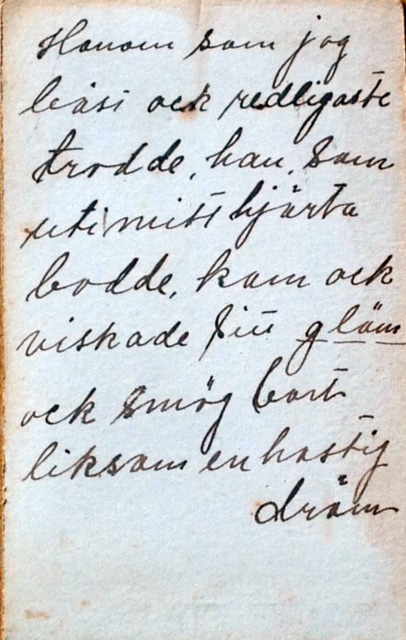 Honom som jag
bäst ock redligaste
trodde, han, som
uti mitt hjärta
bodde, kom ock
viskade sitt glöm
ock smög bort
liksom en hastig
dröm